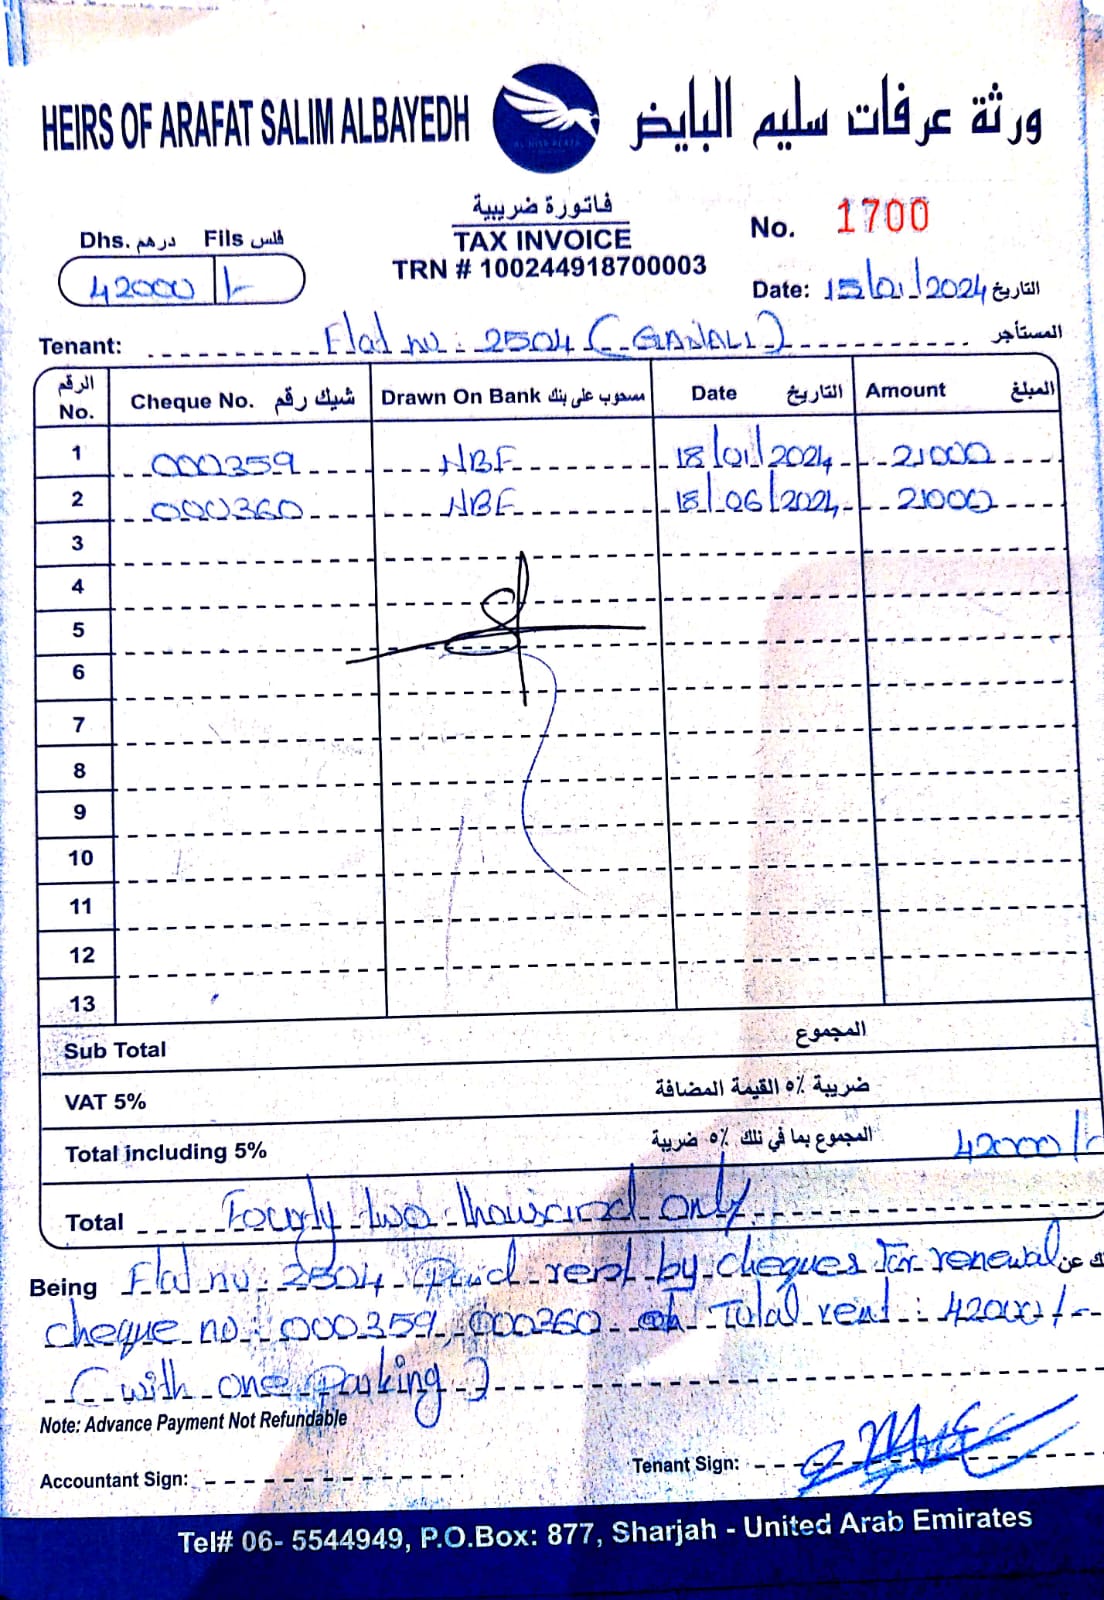 HEIRS OF ARAFAT SALIM ALBAYEDH
ورثة عرفات سليم البايض
فاتورة ضريبية
TAX INVOICE
TRN # 100244918700003
Dhs. درهم Fils فلس
42000 /-
No. 1700
Date: 15/01/2024 التاريخ
Tenant: Flat no: 2504 ( ) المستأجر
الرقم No. Cheque No. شيك رقم Drawn On Bank مسحوب على بنك Date التاريخ Amount المبلغ
1 000359 NBF 18/01/2024 21000
2 000360 NBF 18/06/2024 21000
3
4
5
6
7
8
9
10
11
12
13
Sub Total المجموع
VAT 5% ضريبة ٥٪ القيمة المضافة
Total including 5% المجموع بما في ذلك ٥٪ ضريبة 42000/-
Total Fourty two thousand only
Being Flat no: 2504 Paid rent by cheques for renewal عن
cheque no: 000359, 000360 Total rent: 42000/-
(with one parking)
Note: Advance Payment Not Refundable
Accountant Sign:
Tenant Sign:
Tel# 06- 5544949, P.O.Box: 877, Sharjah - United Arab Emirates